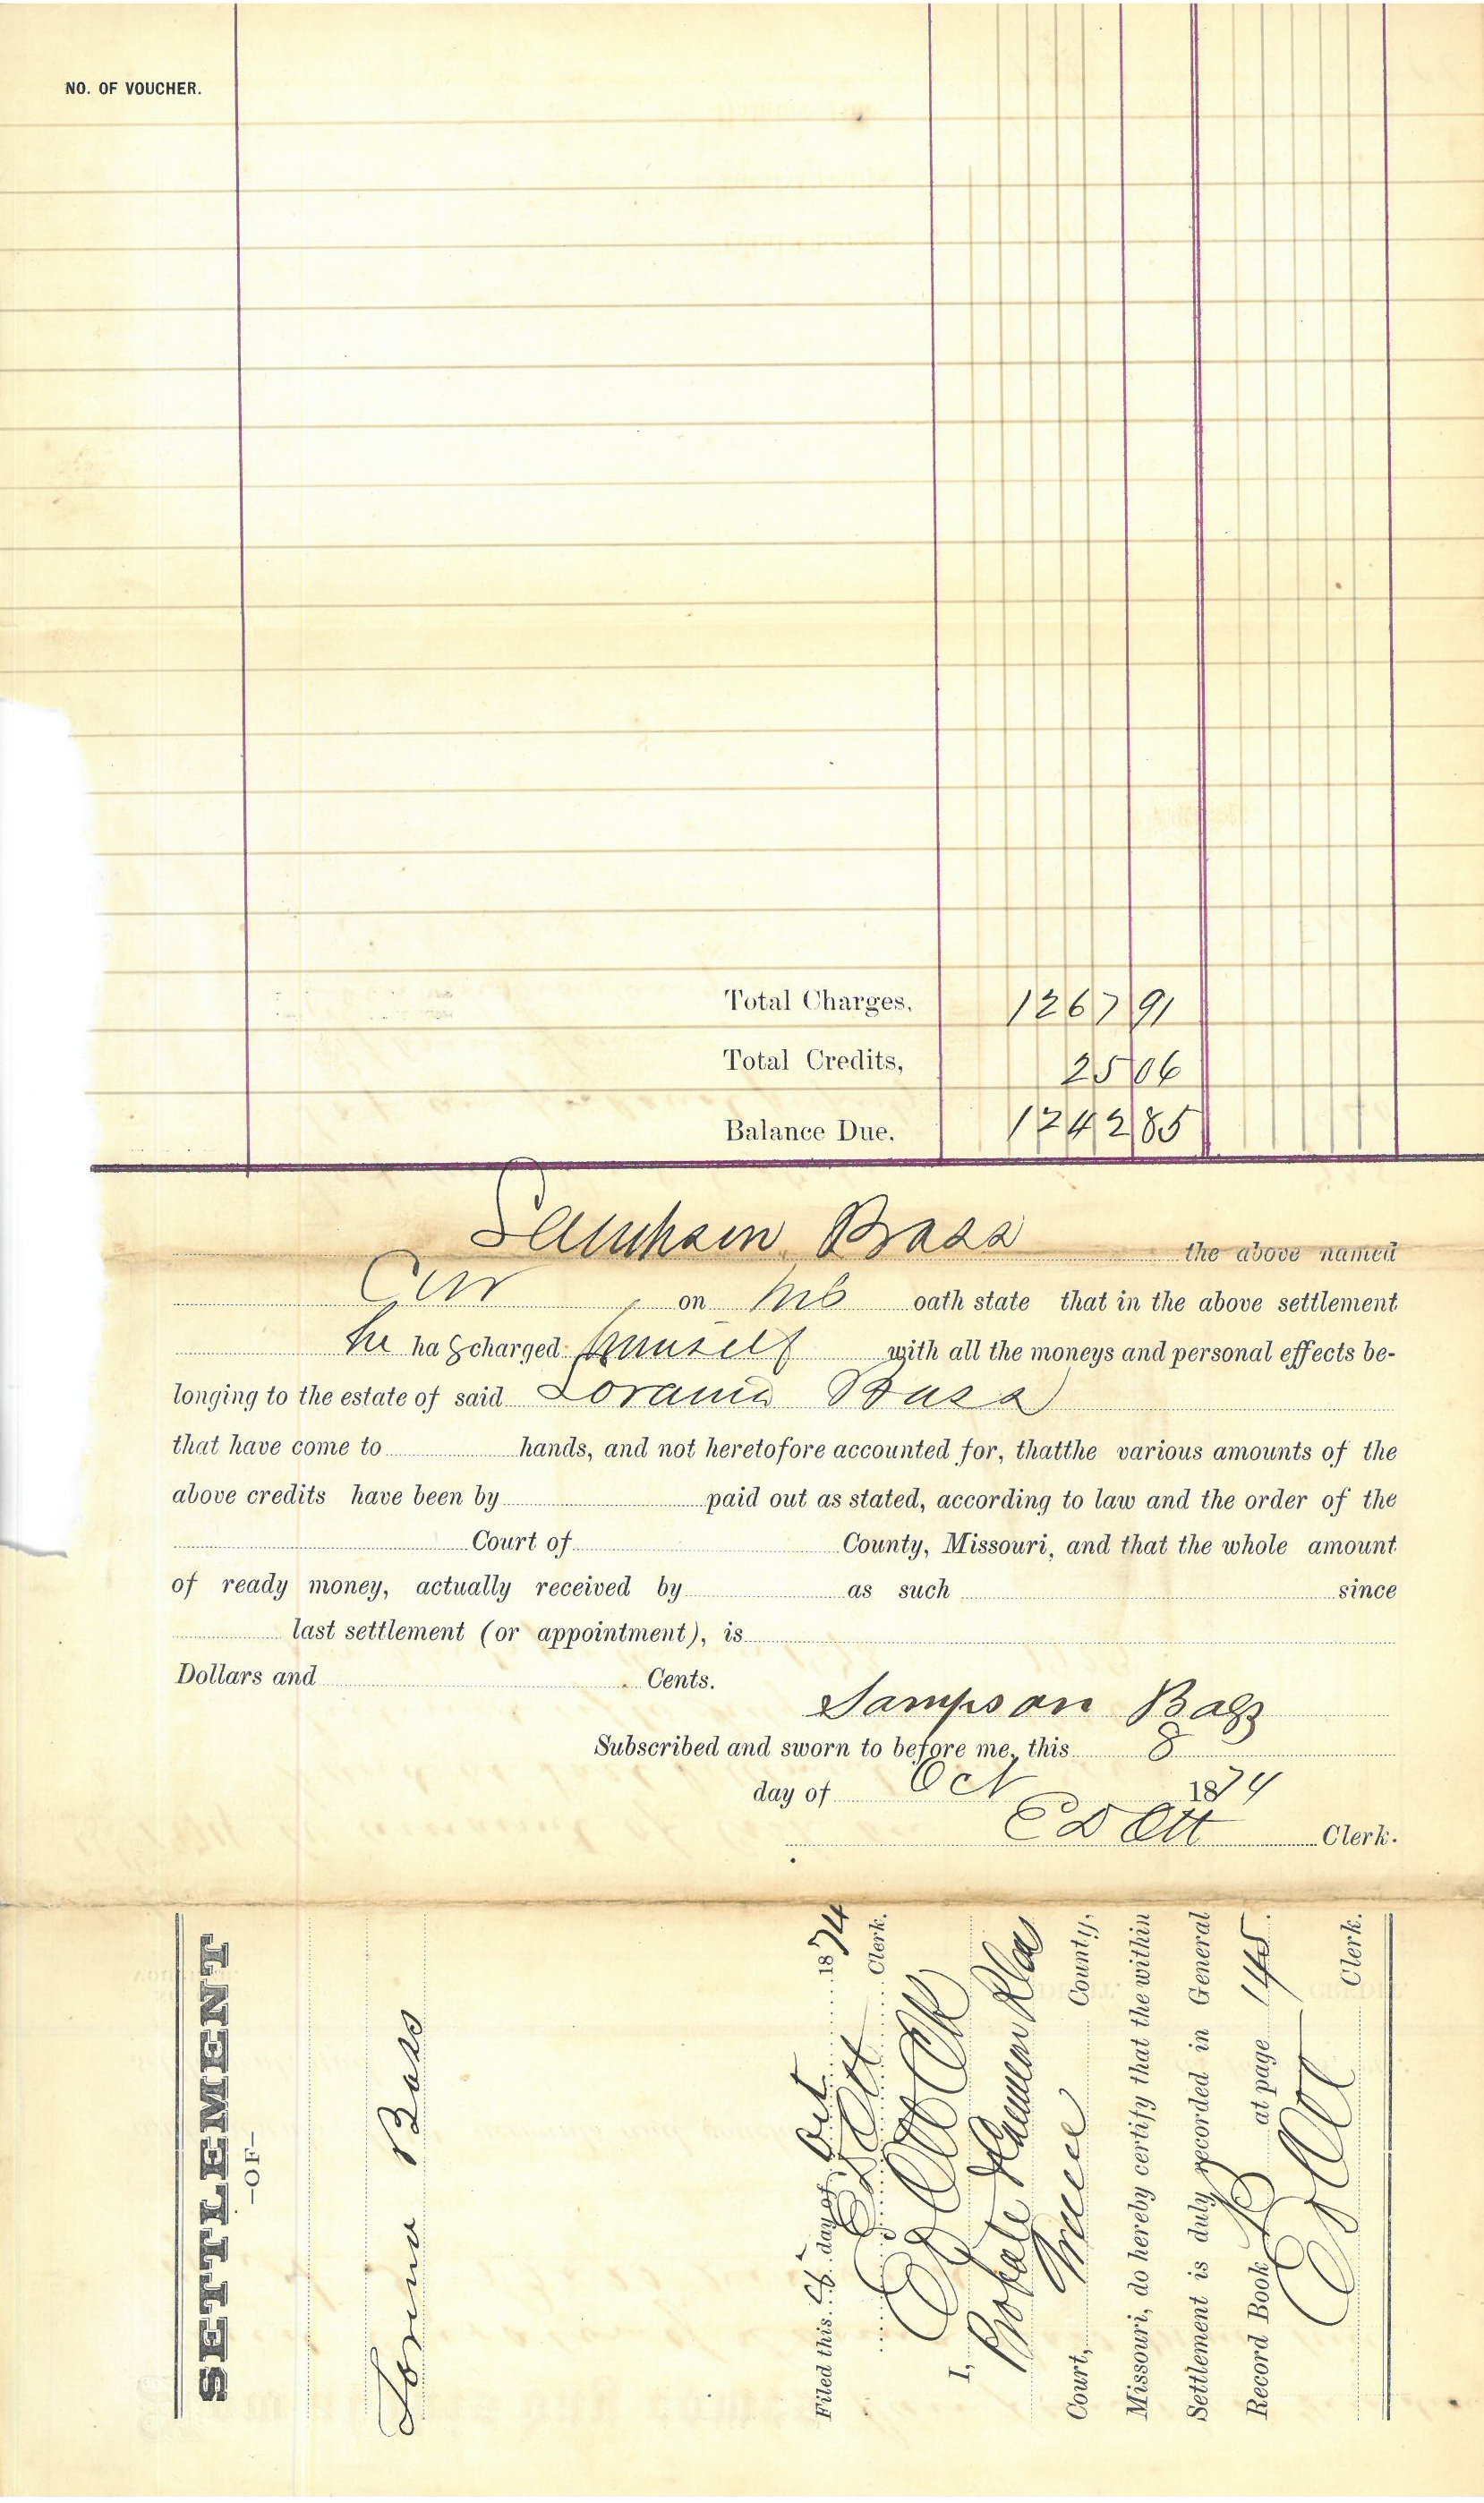 NO. OF VOUCHER.
Total Charges, 1267 91
Total Credits, 25 06
Balance Due. 1242 85
Sampson Bass the above named
Cur on his oath state that in the above settlement
he has charged himself with all the moneys and personal effects be-
longing to the estate of said Bass
that have come to hands, and not heretofore accounted for, thatthe various amounts of the
above credits have been by paid out as stated, according to law and the order of the
Court of County, Missouri, and that the whole amount
of ready money, actually received by as such since
last settlement (or appointment), is
Dollars and Cents.
Sampson Bass
Subscribed and sworn to before me, this 8
day of Oct 1874
E D Ott Clerk.
SETTLEMENT
—OF—
Bass
Filed this 8 day of Oct 1874
E D Ott Clerk.
I, E D Ott Clk
Probate
Court, County,
Missouri, do hereby certify that the within
Settlement is duly recorded in General
Record Book B at page 145.
E D Ott Clerk.